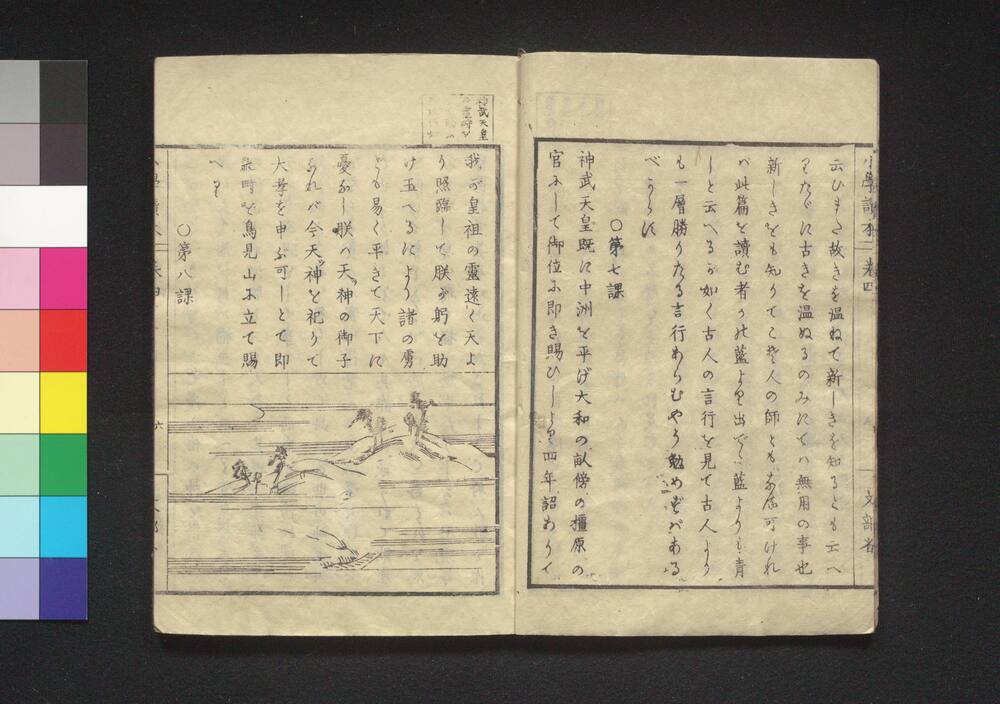 小學讀本 卷四
文部省
云ひまた故きを温ねて新しきを知るとも云へ
りたゞに古きを温ぬるのみにてハ無用の事也
新しきをも知りてこそ人の師ともなる可けれ
バ此篇を讀む者かの藍より出でゝ藍よりも青
しと云へるが如く古人の言行を見て古人より
も一層勝りたる言行あらむやう勉めずバある
べからず
○第七課
神武天皇既に中洲を平げ大和の畝傍の橿原の
宮にして御位に即き賜ひしより四年詔ありて
神武天皇
我が皇祖の靈遠く天よ
り照臨して朕が躬を助
け玉へるにより諸の虜
ども易く平きて天下に
憂なし朕ハ天ツ神の御子
なれバ今天ツ神を祀りて
大孝を申ぶ可しとて即
時を鳥見山に立て賜
へり
○第八課
六